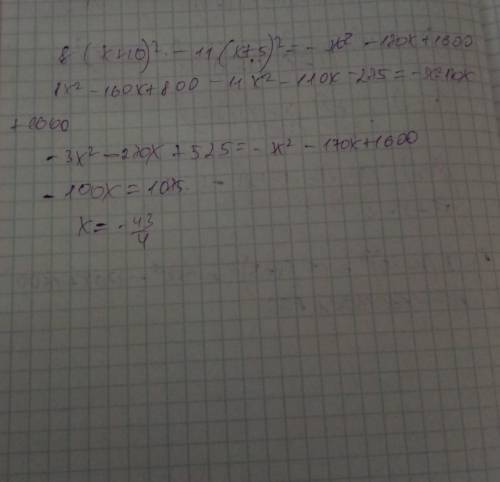 8 (x-10)² - 11 (x+5)² = - 3x² - 170x + 1600
8x² - 160x + 800 - 11x² - 110x - 275 = - 3x² - 170x
+ 1600
- 3x² - 270x + 525 = - x² - 170x + 1600
- 100x = 1075
x = - 43/4